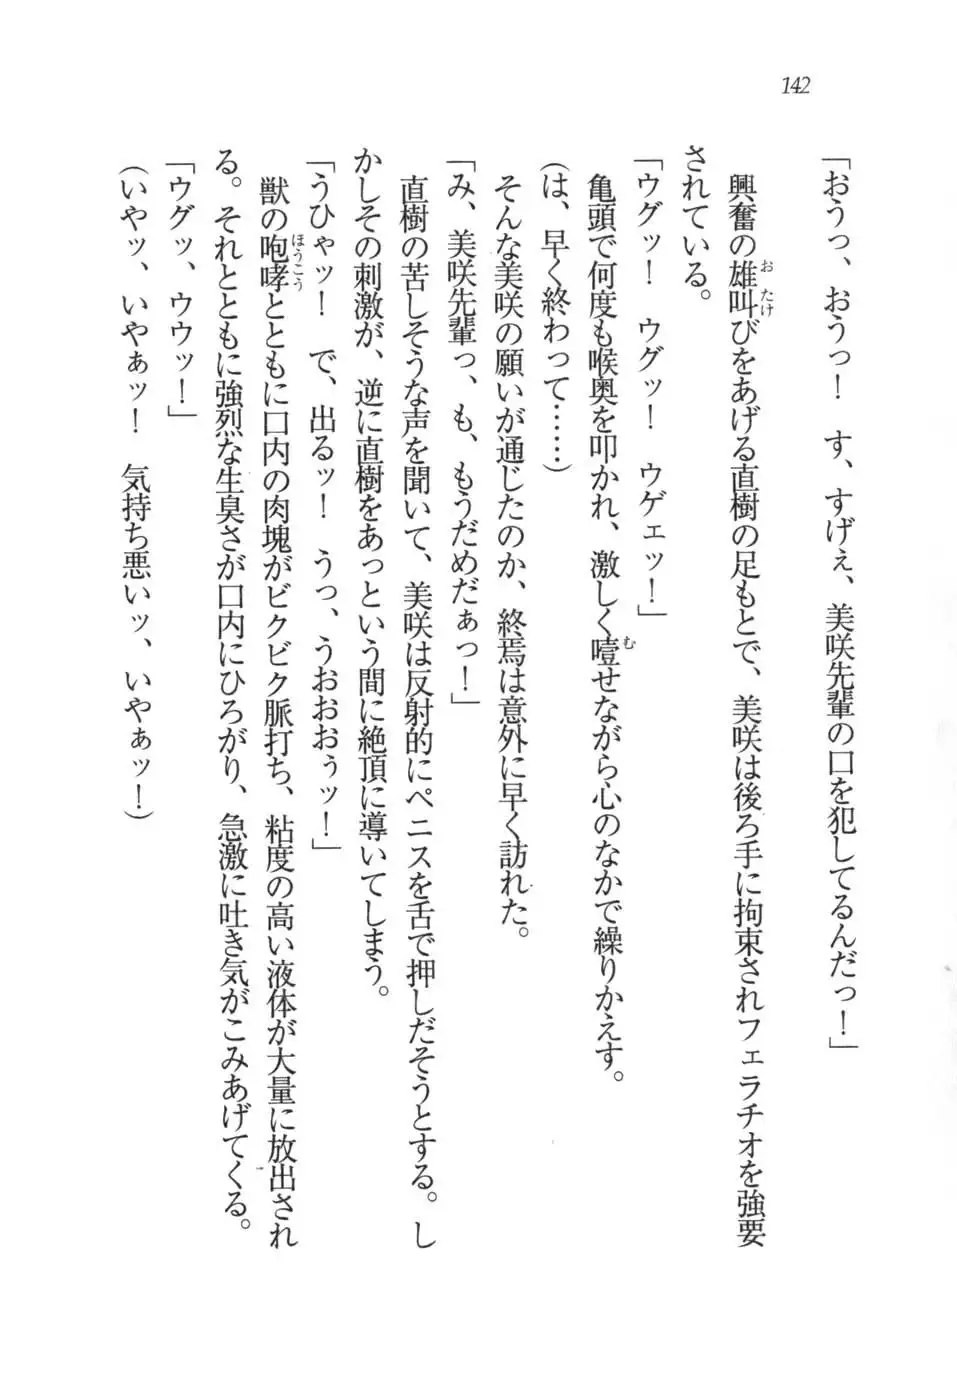 142
「おうっ、おうっ！　す、すげぇ、美咲先輩の口を犯してるんだっ！」
　興奮の雄叫びをあげる直樹の足もとで、美咲は後ろ手に拘束されフェラチオを強要
されている。
「ウグッ！　ウグッ！　ウゲェッ！」
　亀頭で何度も喉奥を叩かれ、激しく噎せながら心のなかで繰りかえす。
（は、早く終わって……）
　そんな美咲の願いが通じたのか、終焉は意外に早く訪れた。
「み、美咲先輩っ、も、もうだめだぁっ！」
　直樹の苦しそうな声を聞いて、美咲は反射的にペニスを舌で押しだそうとする。し
かしその刺激が、逆に直樹をあっという間に絶頂に導いてしまう。
「うひゃッ！　で、出るッ！　うっ、うおおおぅッ！」
　獣の咆哮とともに口内の肉塊がビクビク脈打ち、粘度の高い液体が大量に放出され
る。それとともに強烈な生臭さが口内にひろがり、急激に吐き気がこみあげてくる。
「ウグッ、ウウッ！」
（いやッ、いやぁッ！　気持ち悪いッ、いやぁッ！）